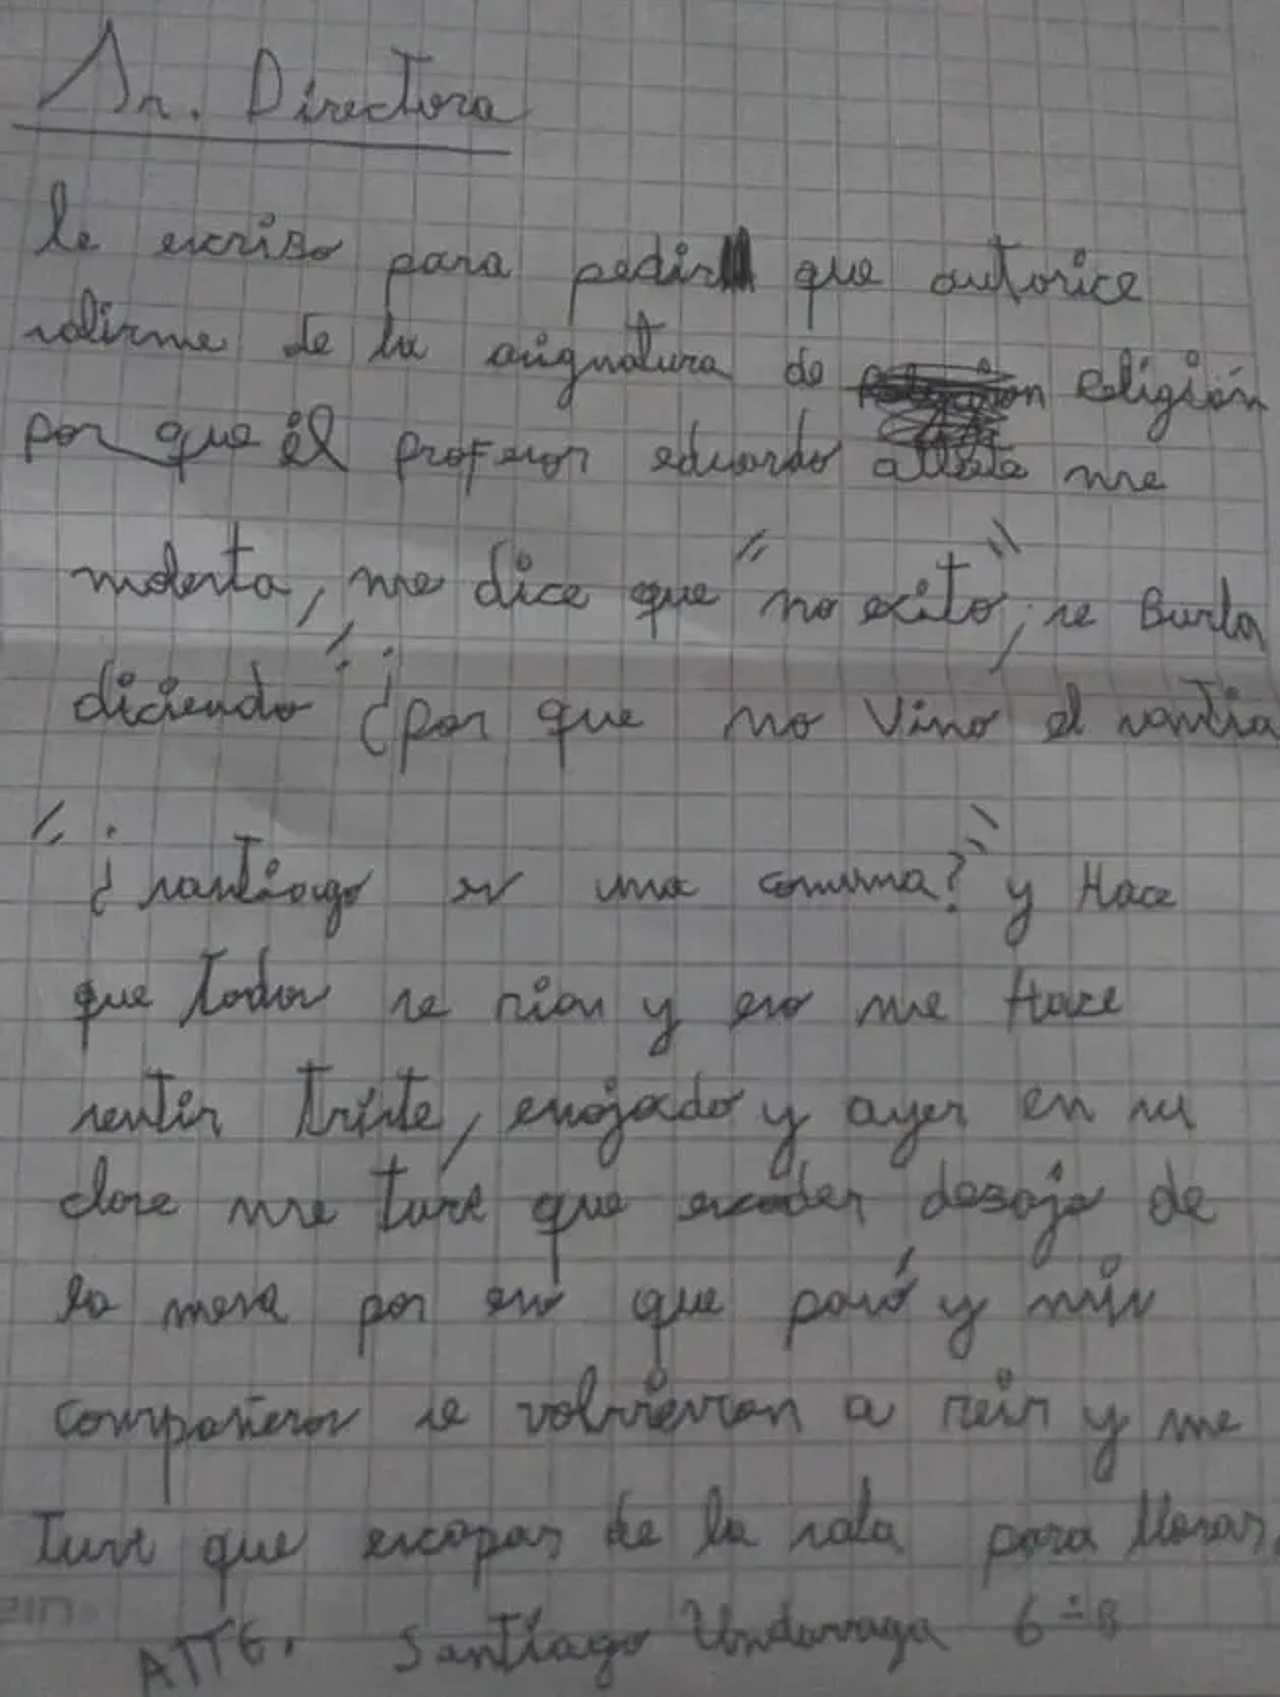 Sr. Directora
le escribo para pedir que autorice
salirme de la asignatura de Religión
por que él profesor eduardo me
molesta, me dice que "no exito", se Burla
diciendo "¿por que no Vino el santia
"¿santiago es una comuna?" y Hace
que todos se rian y eso me Hace
sentir triste, enojado y ayer en su
clase me tuve que esconder desajo de
la mesa por eso que pasó y mis
compañeros se volvieron a reir y me
tuve que escapar de la sala para llorar.
ATTE. Santiago Undurraga 6-B